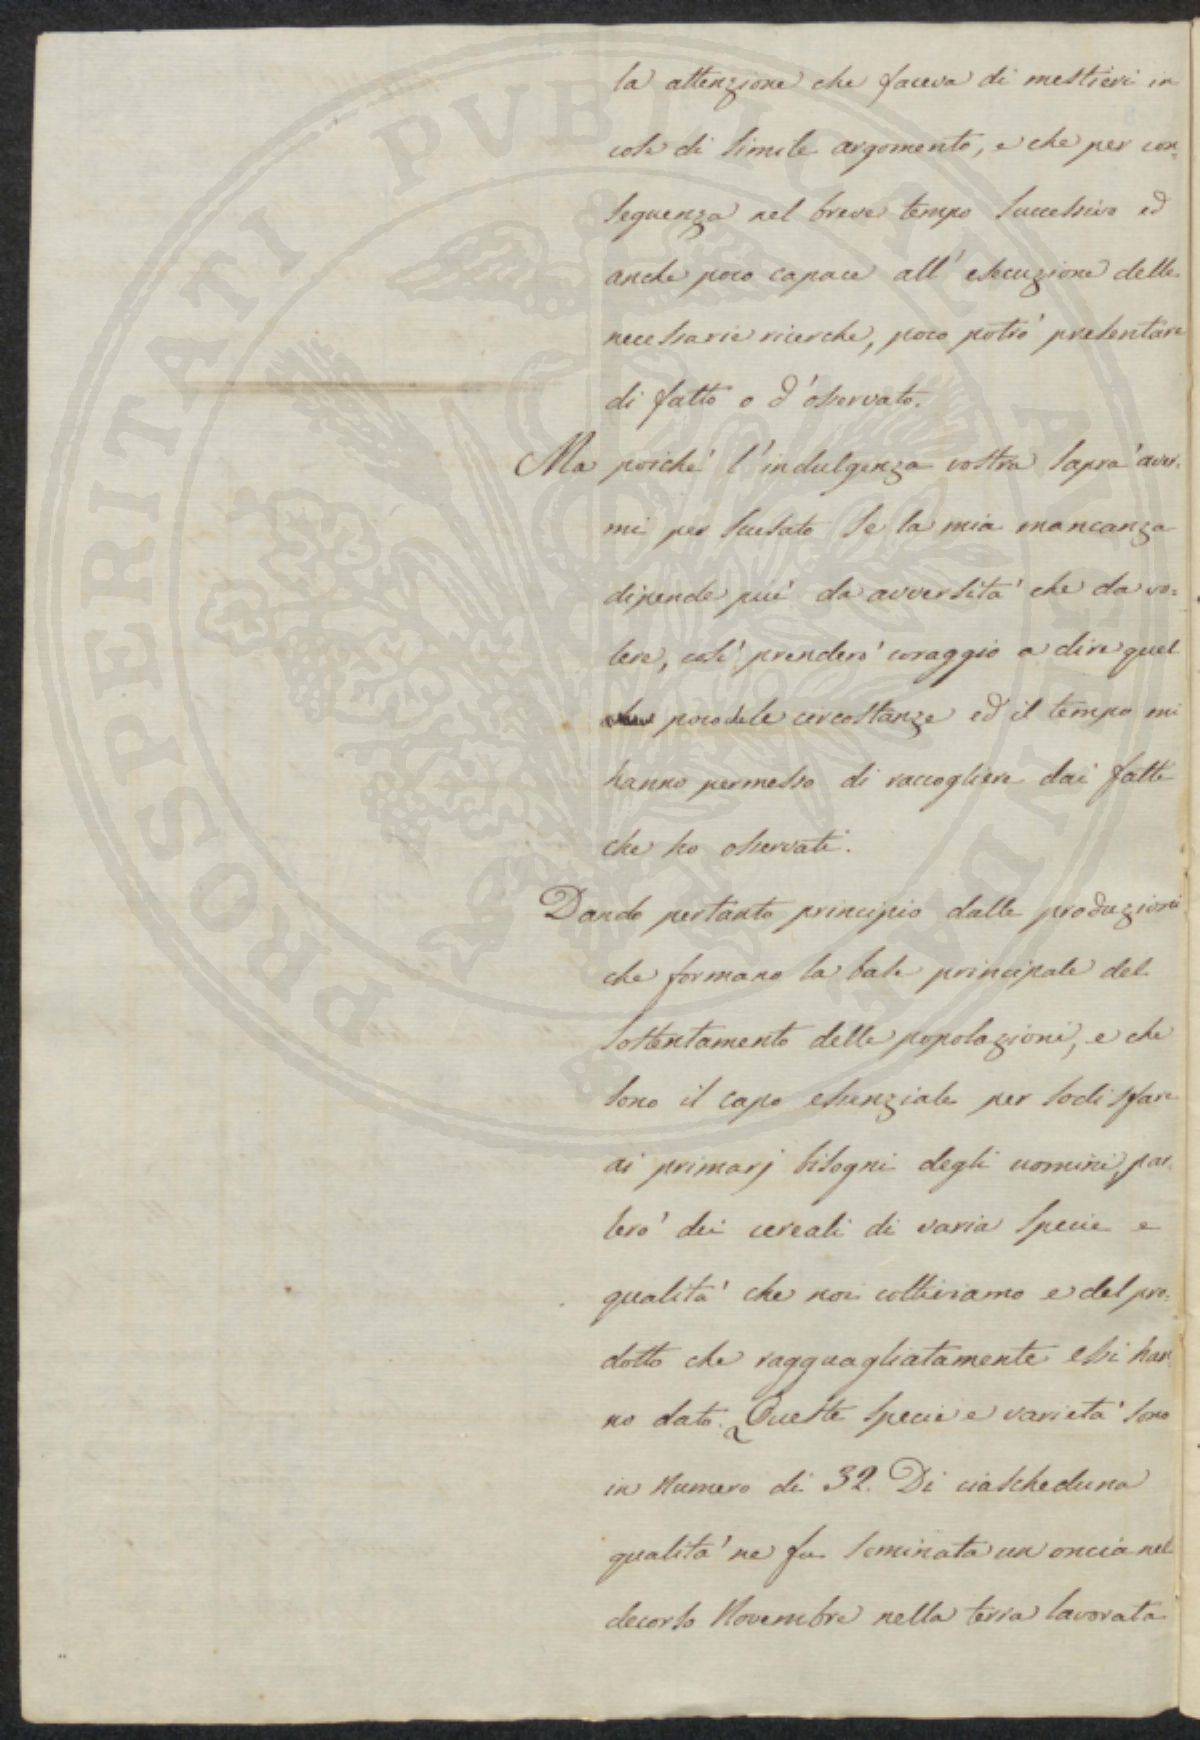 la attenzione che faceva di mestieri in
cose di simile argomento, e che per con=
seguenza nel breve tempo successivo ed
anche poco capace all' esecuzione delle
necessarie ricerche, poco potrò presentare
di fatto o d'osservato.
Ma poiché l'indulgenza vostra saprà aver=
mi per scusato se la mia mancanza
dipende più da avversità che da vo=
lere, così prenderò coraggio a dire quel
poco che le circostanze ed il tempo mi
hanno permesso di raccogliere dai fatti
che ho osservati.
Dando pertanto principio dalle produzioni
che formano la base principale del
sostentamento delle popolazioni, e che
sono il capo essenziale per sodisfare
ai primarj bisogni degli uomini, par=
lerò dei cereali di varia specie e
qualità che noi coltiviamo e del pro=
dotto che ragguagliatamente essi han=
no dato. Queste specie e varietà sono
in Numero di 32. Di ciascheduna
qualità ne fu seminata un oncia nel
decorso Novembre nella terra lavorata
PROSPERITATI PUBLICAE AUGENDAE